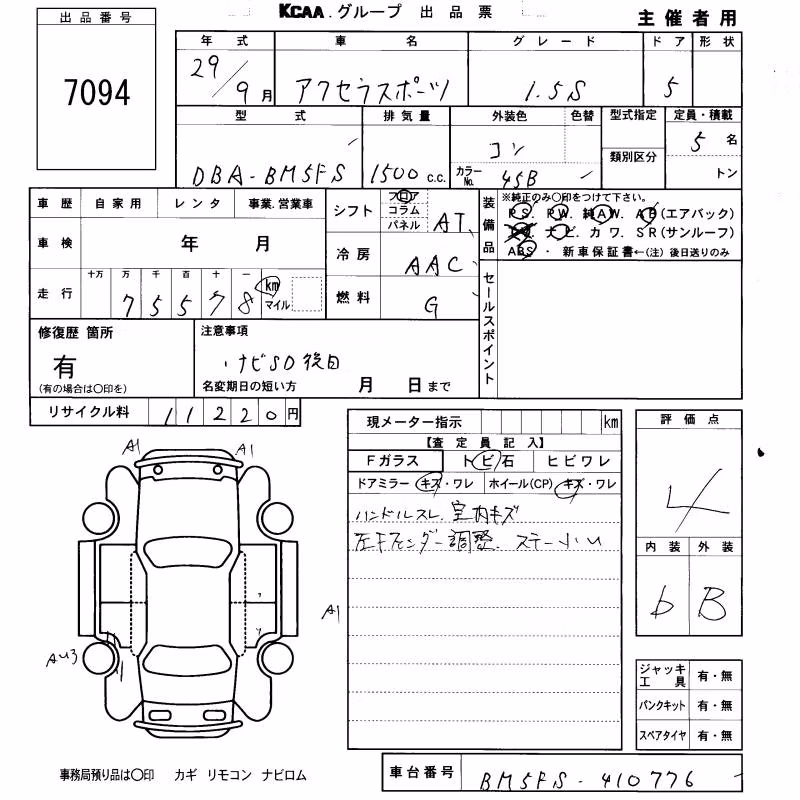 KCAA.グループ 出品票
主催者用
出品番号
7094
年式 車名 グレード ドア 形状
29/9月 アクセラスポーツ 1.5S 5
型式 排気量 外装色 色替 型式指定 定員・積載
DBA-BM5FS 1500c.c. コン 5名
カラーNo. 45B 類別区分 トン
車歴 自家用 レンタ 事業.営業車
車検 年 月
走行 十万 万 千 百 十 一
75578 km マイル
シフト フロア コラム パネル AT
冷房 AAC
燃料 G
装備品 ※純正のみ○印をつけて下さい。
P.S. P.W. 純A.W. A.B(エアバック)
ナビ. カワ. SR(サンルーフ)
ABS ・ 新車保証書←(注) 後日送りのみ
セールスポイント
修復歴 箇所
有
(有の場合は○印を)
注意事項
・ナビSD後日
名変期日の短い方 月 日まで
リサイクル料 11220円
現メーター指示 km
【査定員記入】
Fガラス トビ石 ヒビワレ
ドアミラー キズ・ワレ ホイール(CP) キズ・ワレ
ハンドルスレ. 室内キズ
左Fフェンダー調整.
評価点
4
内装 外装
b B
A1 A1
A1
AU3
ジャッキ工具 有・無
パンクキット 有・無
スペアタイヤ 有・無
事務局預り品は○印 カギ リモコン ナビロム
車台番号 BM5FS-410776